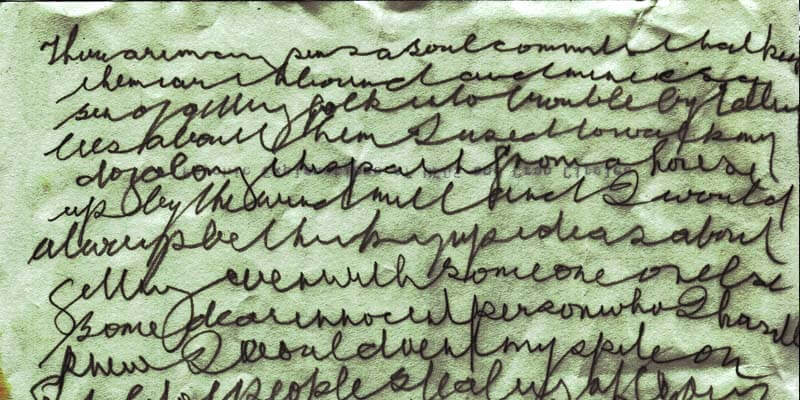 There are many sins a soul commits that keep
them earthbound and mine is a
sin of getting folk into trouble by tellin
lies about them I used to walk my
dog along this path from a house
up by the windmill and I would
always be thinking up ideas about
getting even with someone or else
some dear innocent person who I hardl
knew I would vent my spite on
people stealing